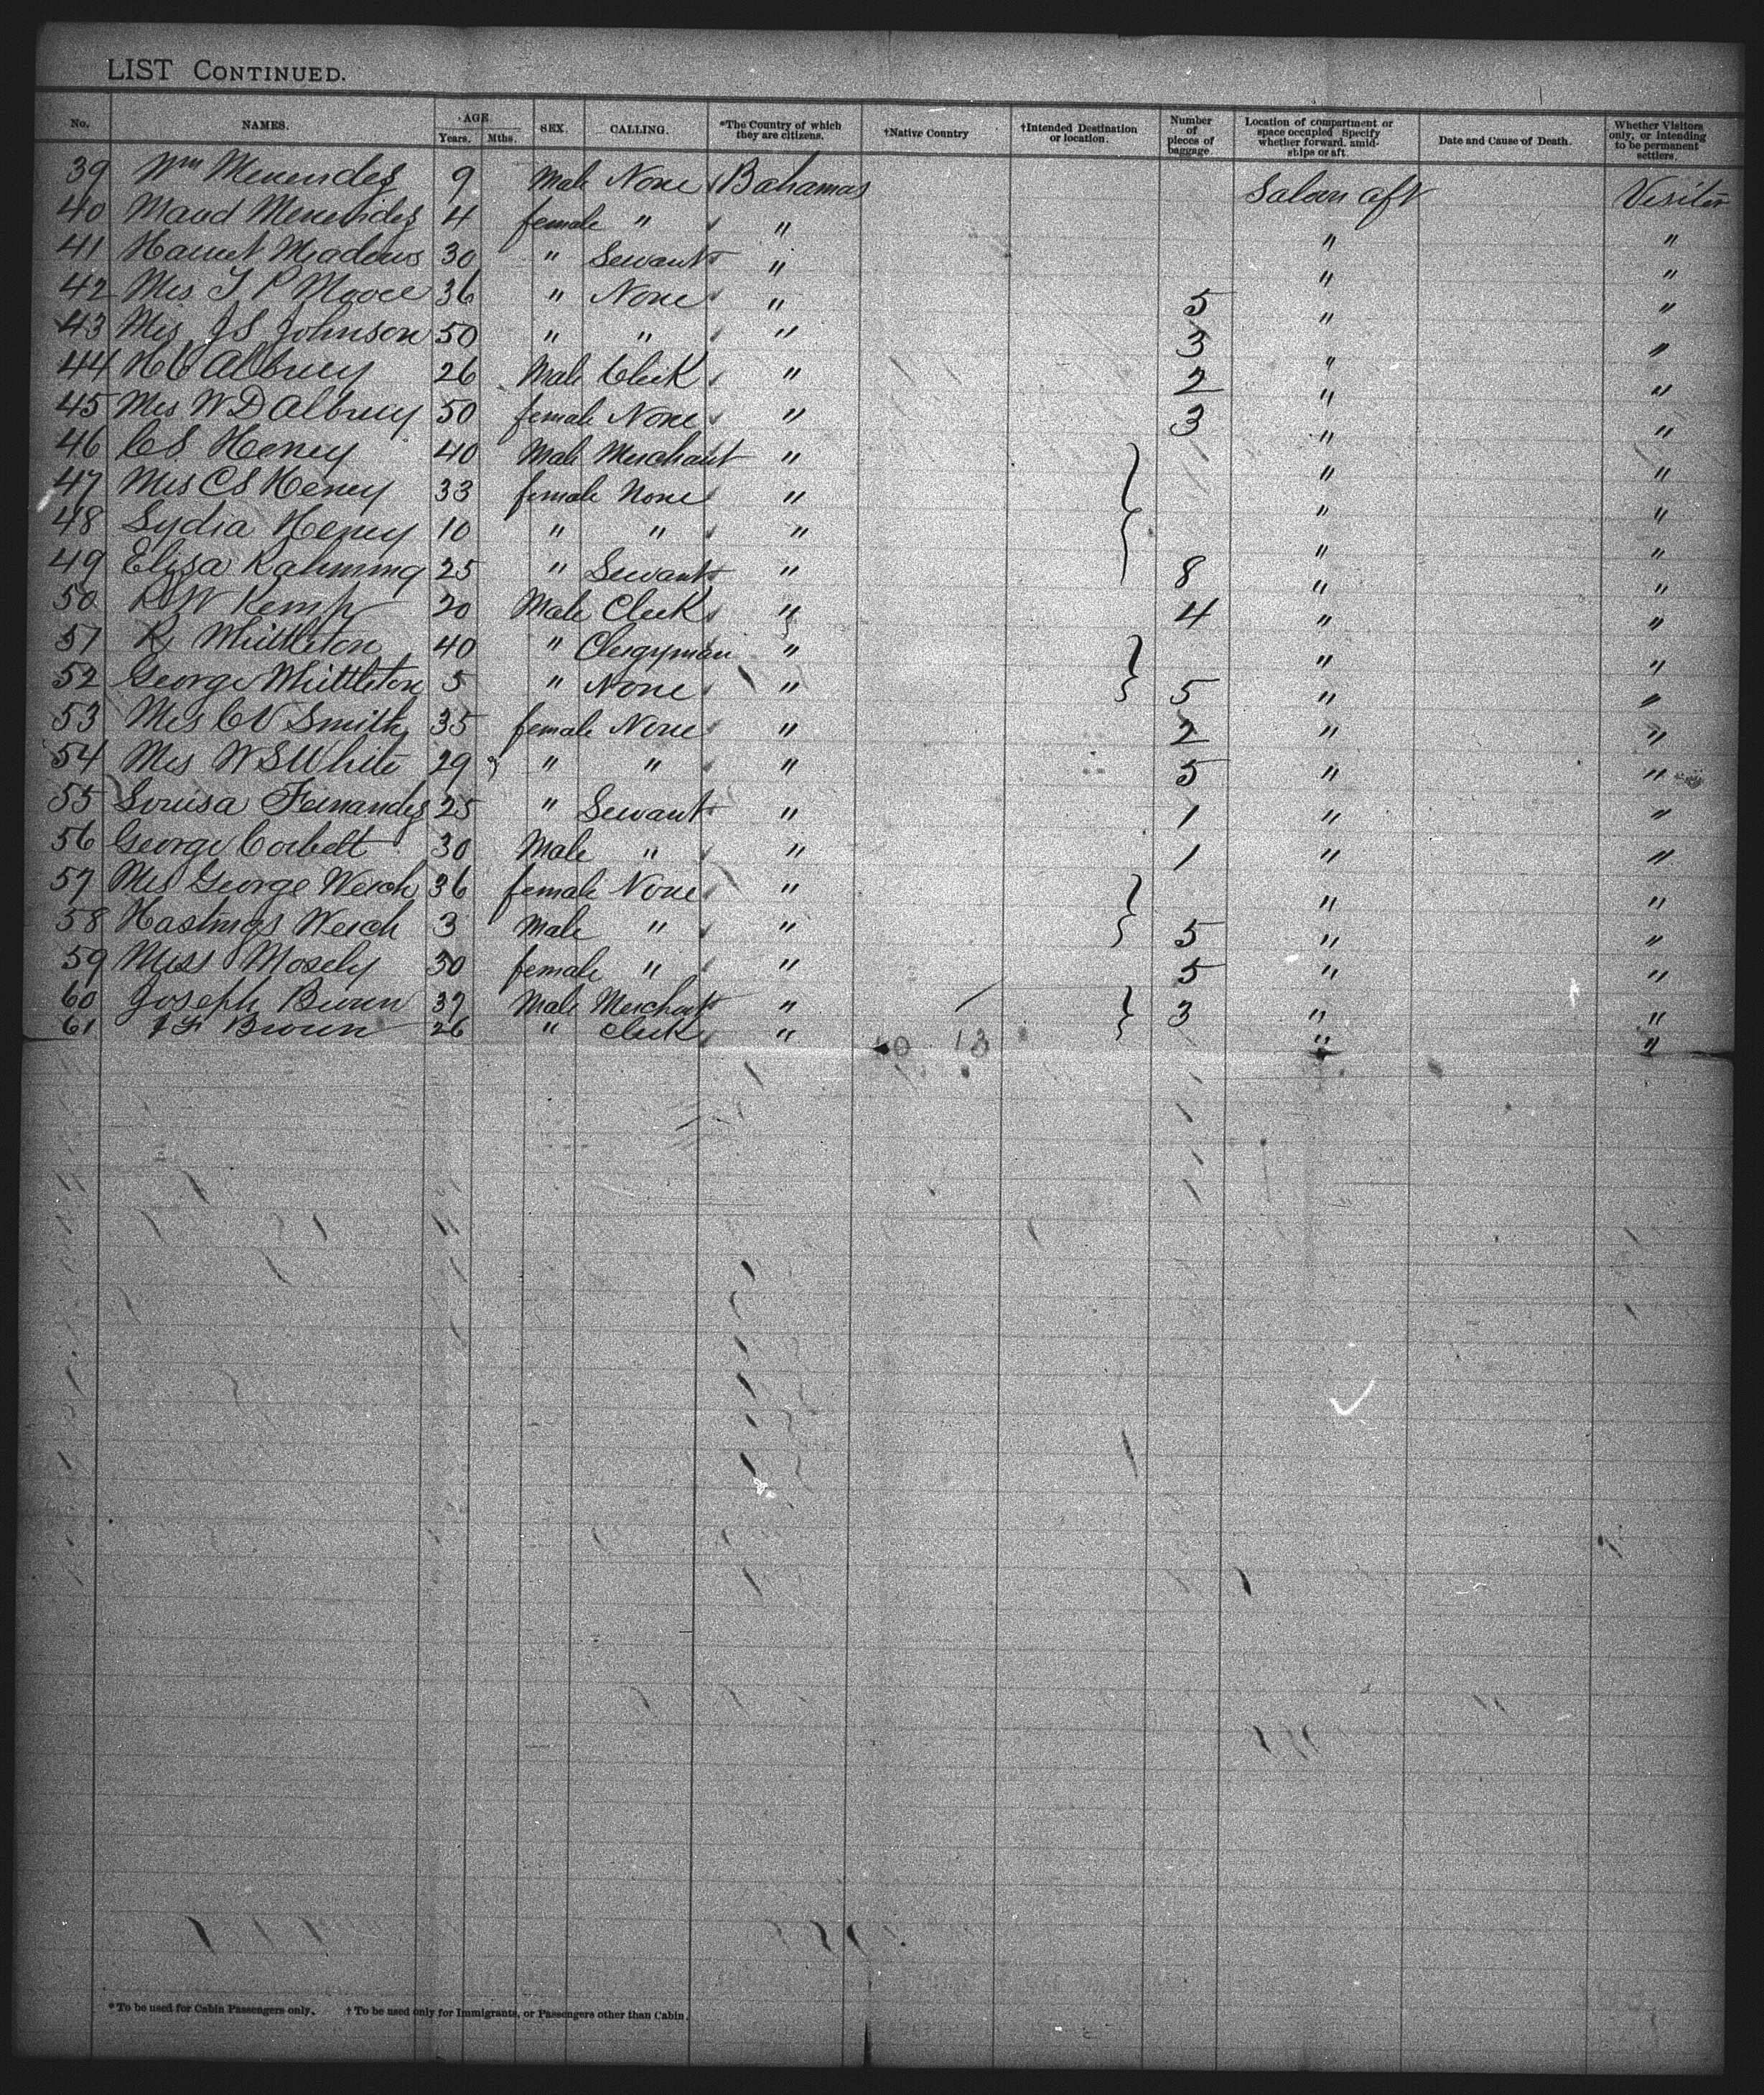 LIST CONTINUED.
No. NAMES. AGE Years. Mths. SEX. CALLING. *The Country of which they are citizens. †Native Country †Intended Destination or location. Number of pieces of baggage. Location of compartment or space occupied Specify whether forward, amidships or aft. Date and Cause of Death. Whether Visitors only, or intending to be permanent settlers.
39 Wm Menendez 9 Male None Bahamas Saloon aft Visitor
40 Maud Menendez 4 female " " " "
41 Harriet Meadows 30 " Servant " " "
42 Mrs T P Moore 36 " None " 5 " "
43 Mrs JS Johnson 50 " " " 3 " "
44 H C Albury 26 Male Clerk " 2 " "
45 Mrs W D Albury 50 female None " 3 " "
46 C S Heney 40 Male Merchant " " "
47 Mrs C S Heney 33 female None " " "
48 Lydia Heney 10 " " " " "
49 Eliza Rahming 25 " Servant " 8 " "
50 R W Kemp 20 Male Clerk " 4 " "
51 R Whittleton 40 " Clergyman " " "
52 George Whittleton 5 " None " 5 " "
53 Mrs C V Smith 35 female None " 2 " "
54 Mrs W S White 29 " " " 5 " "
55 Louisa Fernandez 25 " Servant " 1 " "
56 George Corbett 30 Male " " 1 " "
57 Mrs George Weech 36 female None " " "
58 Hastings Weech 3 Male " " 5 " "
59 Miss Mosely 30 female " " 5 " "
60 Joseph Brown 37 Male Merchant " 3 " "
61 Brown 26 " Clerk " " "
*To be used for Cabin Passengers only. †To be used only for Immigrants, or Passengers other than Cabin.